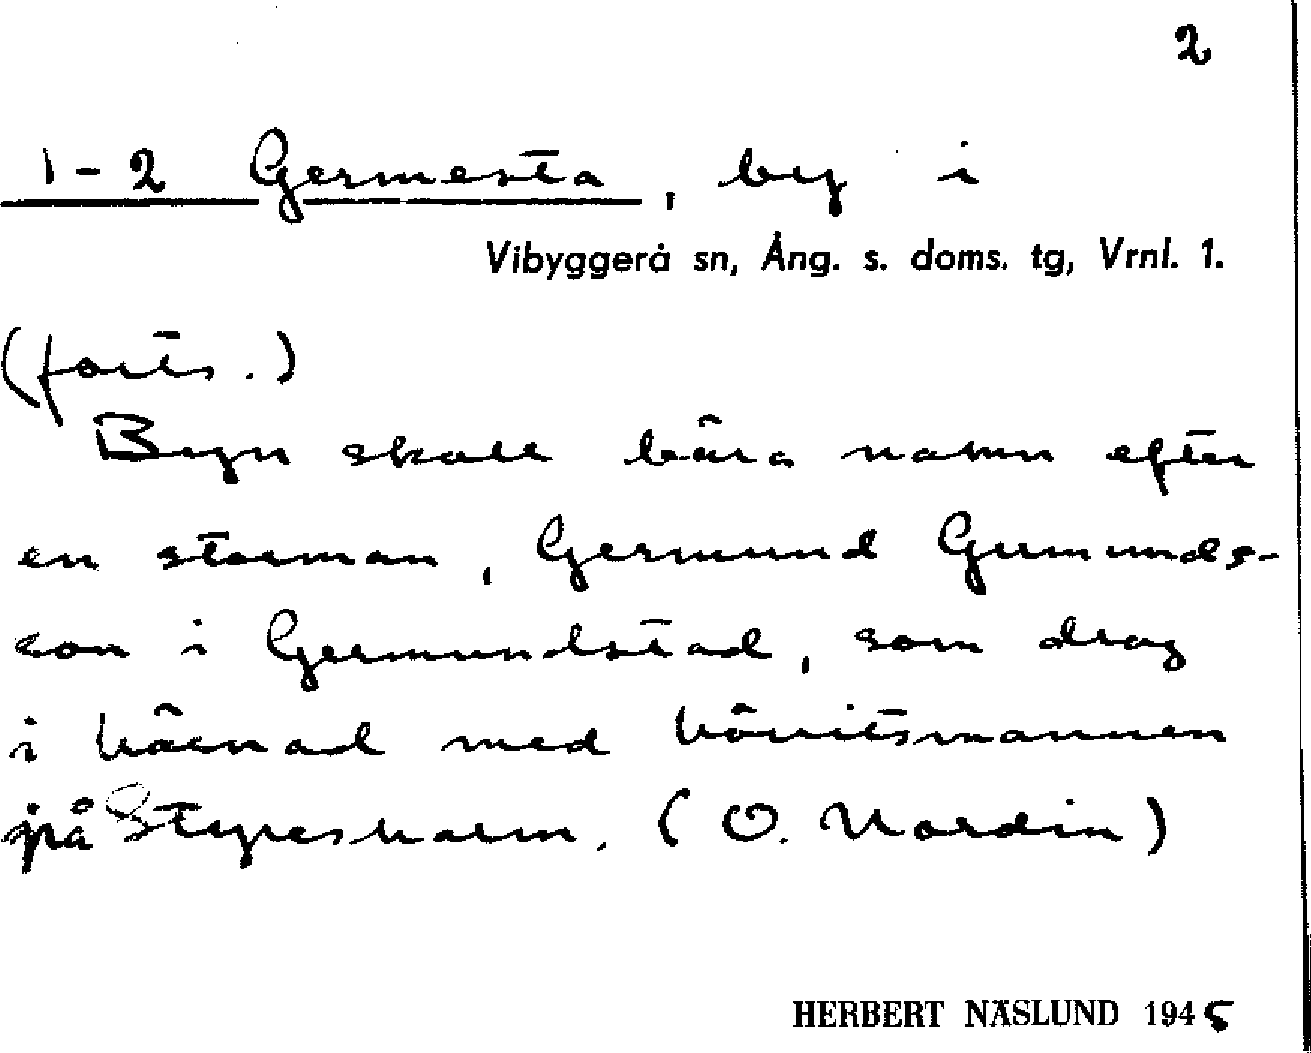 2
1-2 Germesta, by i
Vibyggerå sn, Ång. s. doms. tg, Vrnl. 1.
(forts.)
Byn skall bära namn efter
en storman, Germund Germunds-
son i Germundstad, som drog
i härnad med hövitsmannen
på Styresholm. (O. Nordin)
HERBERT NÄSLUND 1945